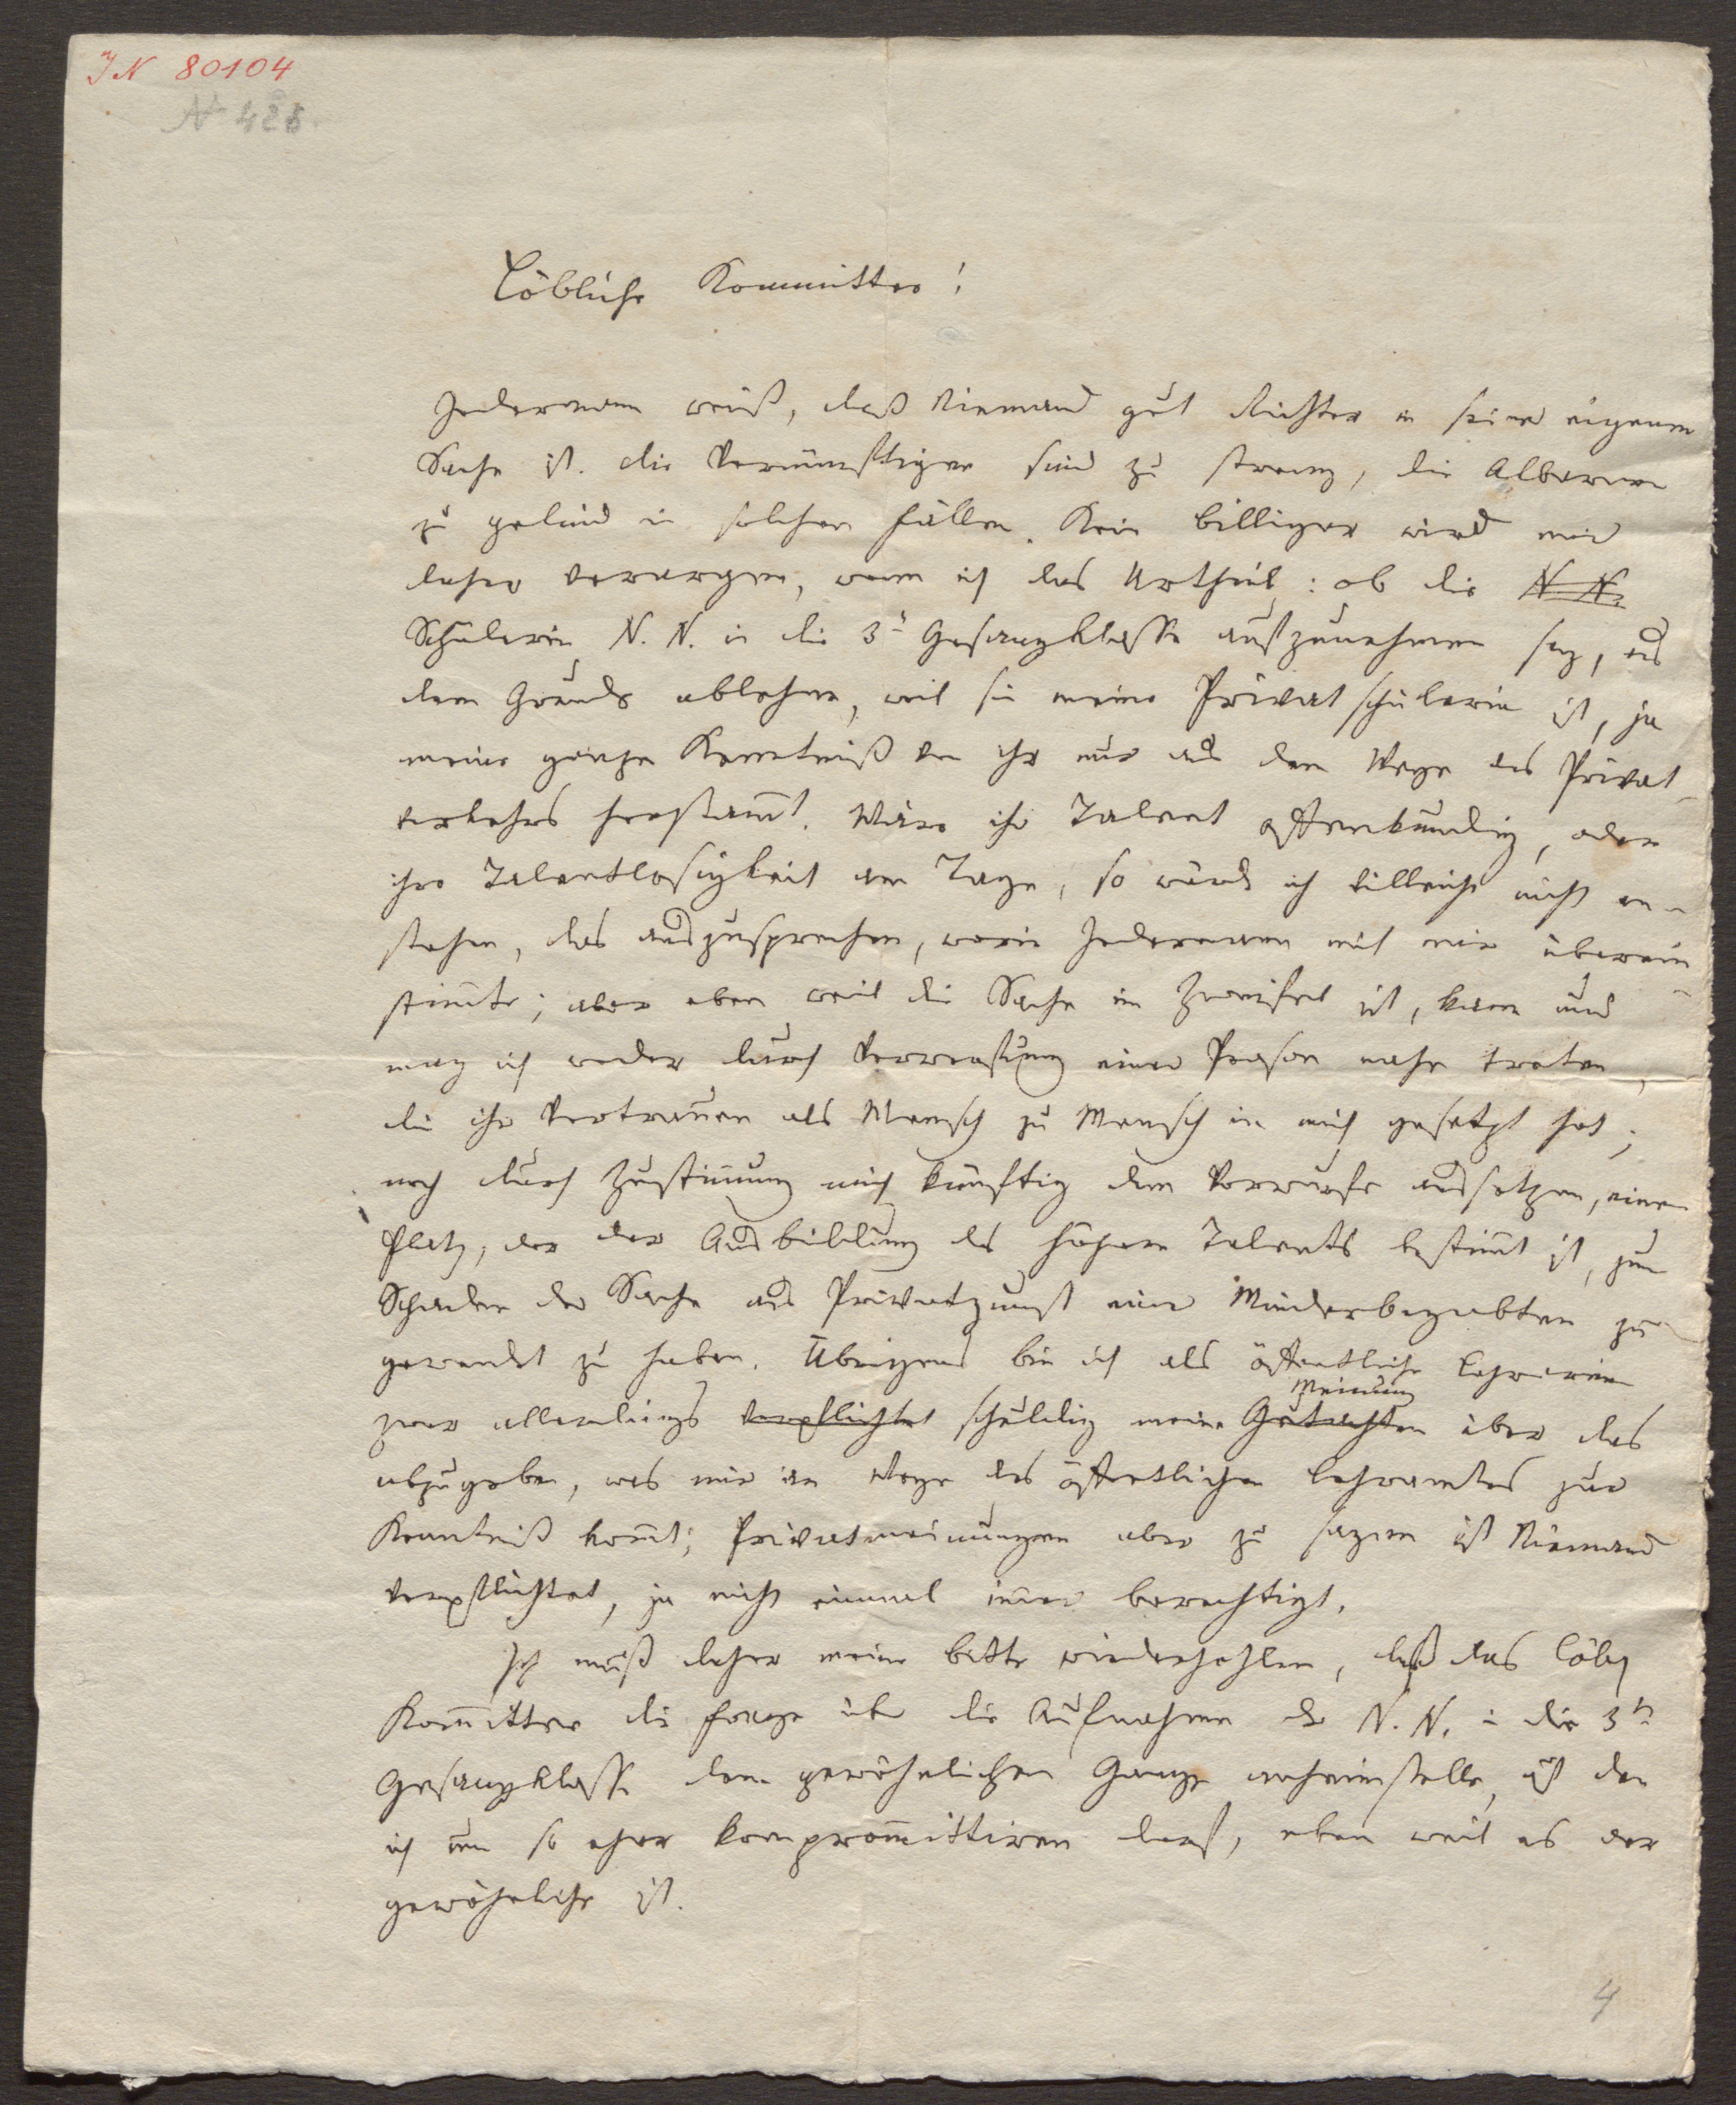 IN 80104
N 485.
Löbliche Kommittee!
Jedermann weiß, daß Niemand gut Richter in seiner eigenen
Sache ist. die Vernünftigen sind zu streng, die Albernen
zu gelind in solchen Fällen. Kein billiger wird mir
daher verargen, wenn ich das Urtheil: ob die N. N.
Schülerin N. N. in die 3te Gesangklasse aufzunehmen sey, aus
dem Grunde ablehne, weil sie meine Privatschülerin ist, ja
meine ganze Kenntniß von ihr nur aus dem Wege des Privat-
verkehrs herstam̅t. Wäre ihr Talent offenkundig, oder
ihre Talentlosigkeit am Tage, so würde ich villeicht nicht an-
stehen, das auszusprechen, worin Jedermann mit mir überein-
stim̅te; aber eben weil die Sache im Zweifel ist, kann und
mag ich weder durch Verwerfung einer Person nahe treten,
die ihr Vertrauen als Mensch zu Mensch in mich gesetzt hat;
noch durch Zustim̅ung mich künftig dem Vorwurfe aussetzen, einen
Platz, der der Ausbildung des höhern Talents bestim̅t ist, zum
Schaden der Sache aus Privatgunst einer Minderbegabten zu-
gewendet zu haben. Übrigens bin ich als öffentliche Lehrerinn
zwar allerdings verpflichtet schuldig meine Gutachten Meinung über das
abzugeben, was mir im Wege des öffentlichen Lehramtes zur
Kenntniß kom̅t; Privatmeinungen aber zu sagen ist Niemand
verpflichtet, ja nicht einmal im̅er berechtigt.
Ich muß daher meine Bitte wiederhohlen, daß das Löbl
Kom̅ittee die Frage über die Aufnahme der N. N. in die 3te
Gesangklasse dem gewöhnlichen Gange anheimstelle, auf den
ich um so eher komprom̅ittiren darf, eben weil es der
gewöhnliche ist.
4